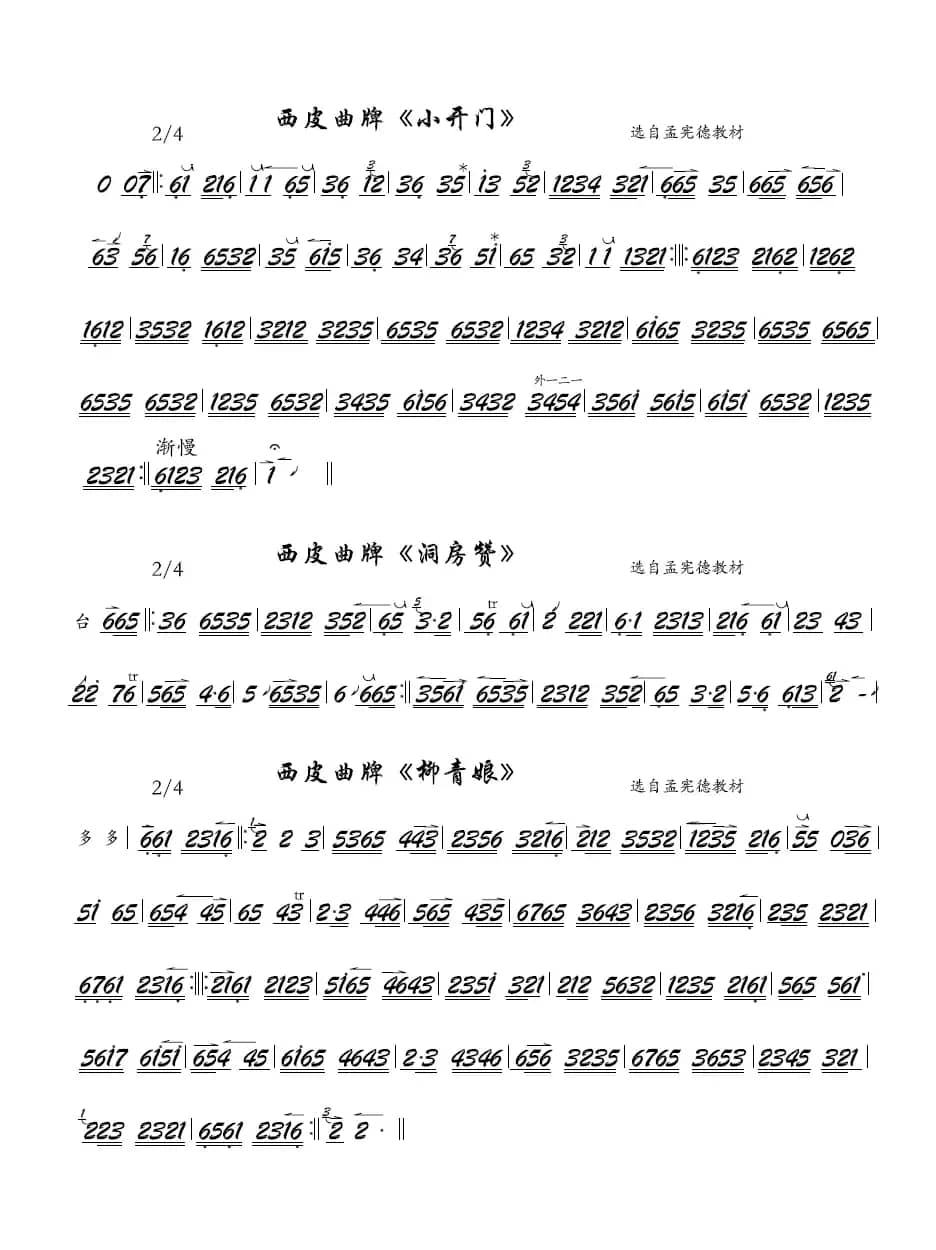 西皮曲牌《小开门》
2/4 选自孟宪德教材
0 07‖: 61 216|11 65|36 12|36 35|13 52|1234 321|665 35|665 656|
63 56|16 6532|35 615|36 34|36 51|65 32|11 1321:‖: 6123 2162|1262
1612|3532 1612|3212 3235|6535 6532|1234 3212|6165 3235|6535 6565|
6535 6532|1235 6532|3435 6156|3432 3454|3561 5615|6151 6532|1235
外一二一
渐慢
2321:‖ 6123 216|1 ‖
西皮曲牌《洞房赞》
2/4 选自孟宪德教材
台 665‖: 36 6535|2312 352|65 3·2|56 61|2 221|6·1 2313|216 61|23 43|
22 76|565 4·6|5 6535|6 665:‖ 3561 6535|2312 352|65 3·2|5·6 613|2 -
西皮曲牌《柳青娘》
2/4 选自孟宪德教材
多 多| 661 2316‖: 2 2 3|5365 443|2356 3216|212 3532|1235 216|55 036|
51 65|654 45|65 43|2·3 446|565 435|6765 3643|2356 3216|235 2321|
6761 2316:‖: 2161 2123|5165 4643|2351 321|212 5632|1235 2161|565 561|
5617 6151|654 45|6165 4643|2·3 4346|656 3235|6765 3653|2345 321|
223 2321|6561 2316:‖ 2 2 · ‖